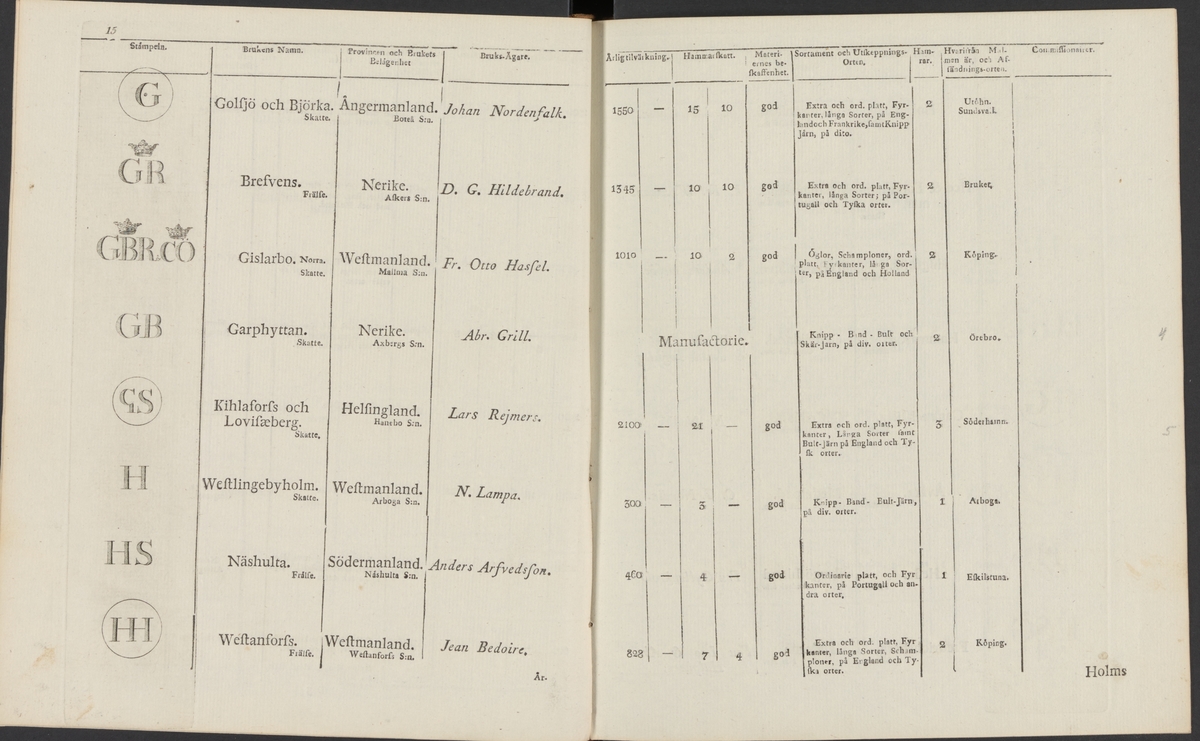 15
Stämpeln.
Brukens Namn.
Provincen och Brukets
Belägenhet
Bruks-Ägare.
G
Golſjö och Björka.
Skatte.
Ångermanland.
Boteå S:n.
Johan Nordenfalk.
GR
Brefvens.
Frälſe.
Nerike.
Aſkers S:n.
D. G. Hildebrand.
GBR.CÖ
Gislarbo. Norra.
Skatte.
Weſtmanland.
Malma S:n.
Fr. Otto Hasſel.
GB
Garphyttan.
Skatte.
Nerike.
Axbergs S:n.
Abr. Grill.
GS
Kihlaforſs och
Loviſæberg.
Skatte.
Helſingland.
Hanebo S:n.
Lars Rejmers.
H
Weſtlingebyholm.
Skatte.
Weſtmanland.
Arboga S:n.
N. Lampa.
HS
Näshulta.
Frälſe.
Södermanland.
Näshulta S:n.
Anders Arfvedsſon.
HH
Weſtanforſs.
Frälſe.
Weſtmanland.
Weſtanforſs S:n.
Jean Bedoire.
År-
Årlig tilvärkning.
Hammarſkatt.
Materi-
ernes be-
ſkaffenhet.
Sortament och Utſkeppnings-
Orten.
Ham-
rar.
Hvarifrån Mal-
men är, och Af-
ſändnings-orten.
Commiſſionairer.
1550 — 15 10 god
Extra och ord. platt, Fyr-
kanter, långa Sorter, på Eng-
land och Frankrike, ſamt Knipp
järn, på dito.
2
Utöhn.
Sundsvall.
1345 — 10 10 god
Extra och ord. platt, Fyr-
kanter, långa Sorter; på Por-
tugall och Tyſka orter.
2
Bruket.
1010 — 10 2 god
Öglor, Schamploner, ord.
platt, Fyrkanter, långa Sor-
ter, på England och Holland
2
Köping.
Manufactorie.
Knipp - Band - Bult och
Skär-järn, på div. orter.
2
Örebro.
4
2100 — 21 — god
Extra och ord. platt, Fyr-
kanter, Långa Sorter ſamt
Bult-järn på England och Ty-
ſk orter.
3
Söderhamn.
5
300 — 3 — god
Knipp- Band- Bult-Järn,
på div. orter.
1
Arboga.
460 — 4 — god
Ordinarie platt, och Fyr
kanter, på Portugall och an-
dra orter.
1
Eſkilstuna.
828 — 7 4 god
Extra och ord. platt, Fyr
kanter, långa Sorter, Scham-
ploner, på England och Ty-
ſka orter.
2
Köping.
Holms